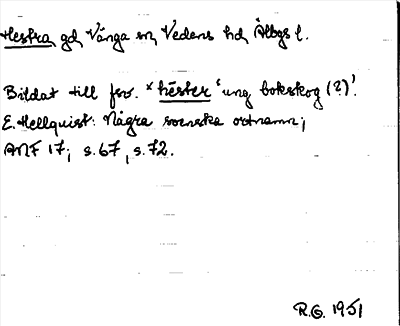 Hestra gd Vånga sn, Vedens hd Älvbgs l.
Bildat till fsv. *hēster 'ung bokskog (?)'.
E. Hellquist: Några svenska ortnamn;
ANF 17; s. 67, s. 72.
R.G. 1951